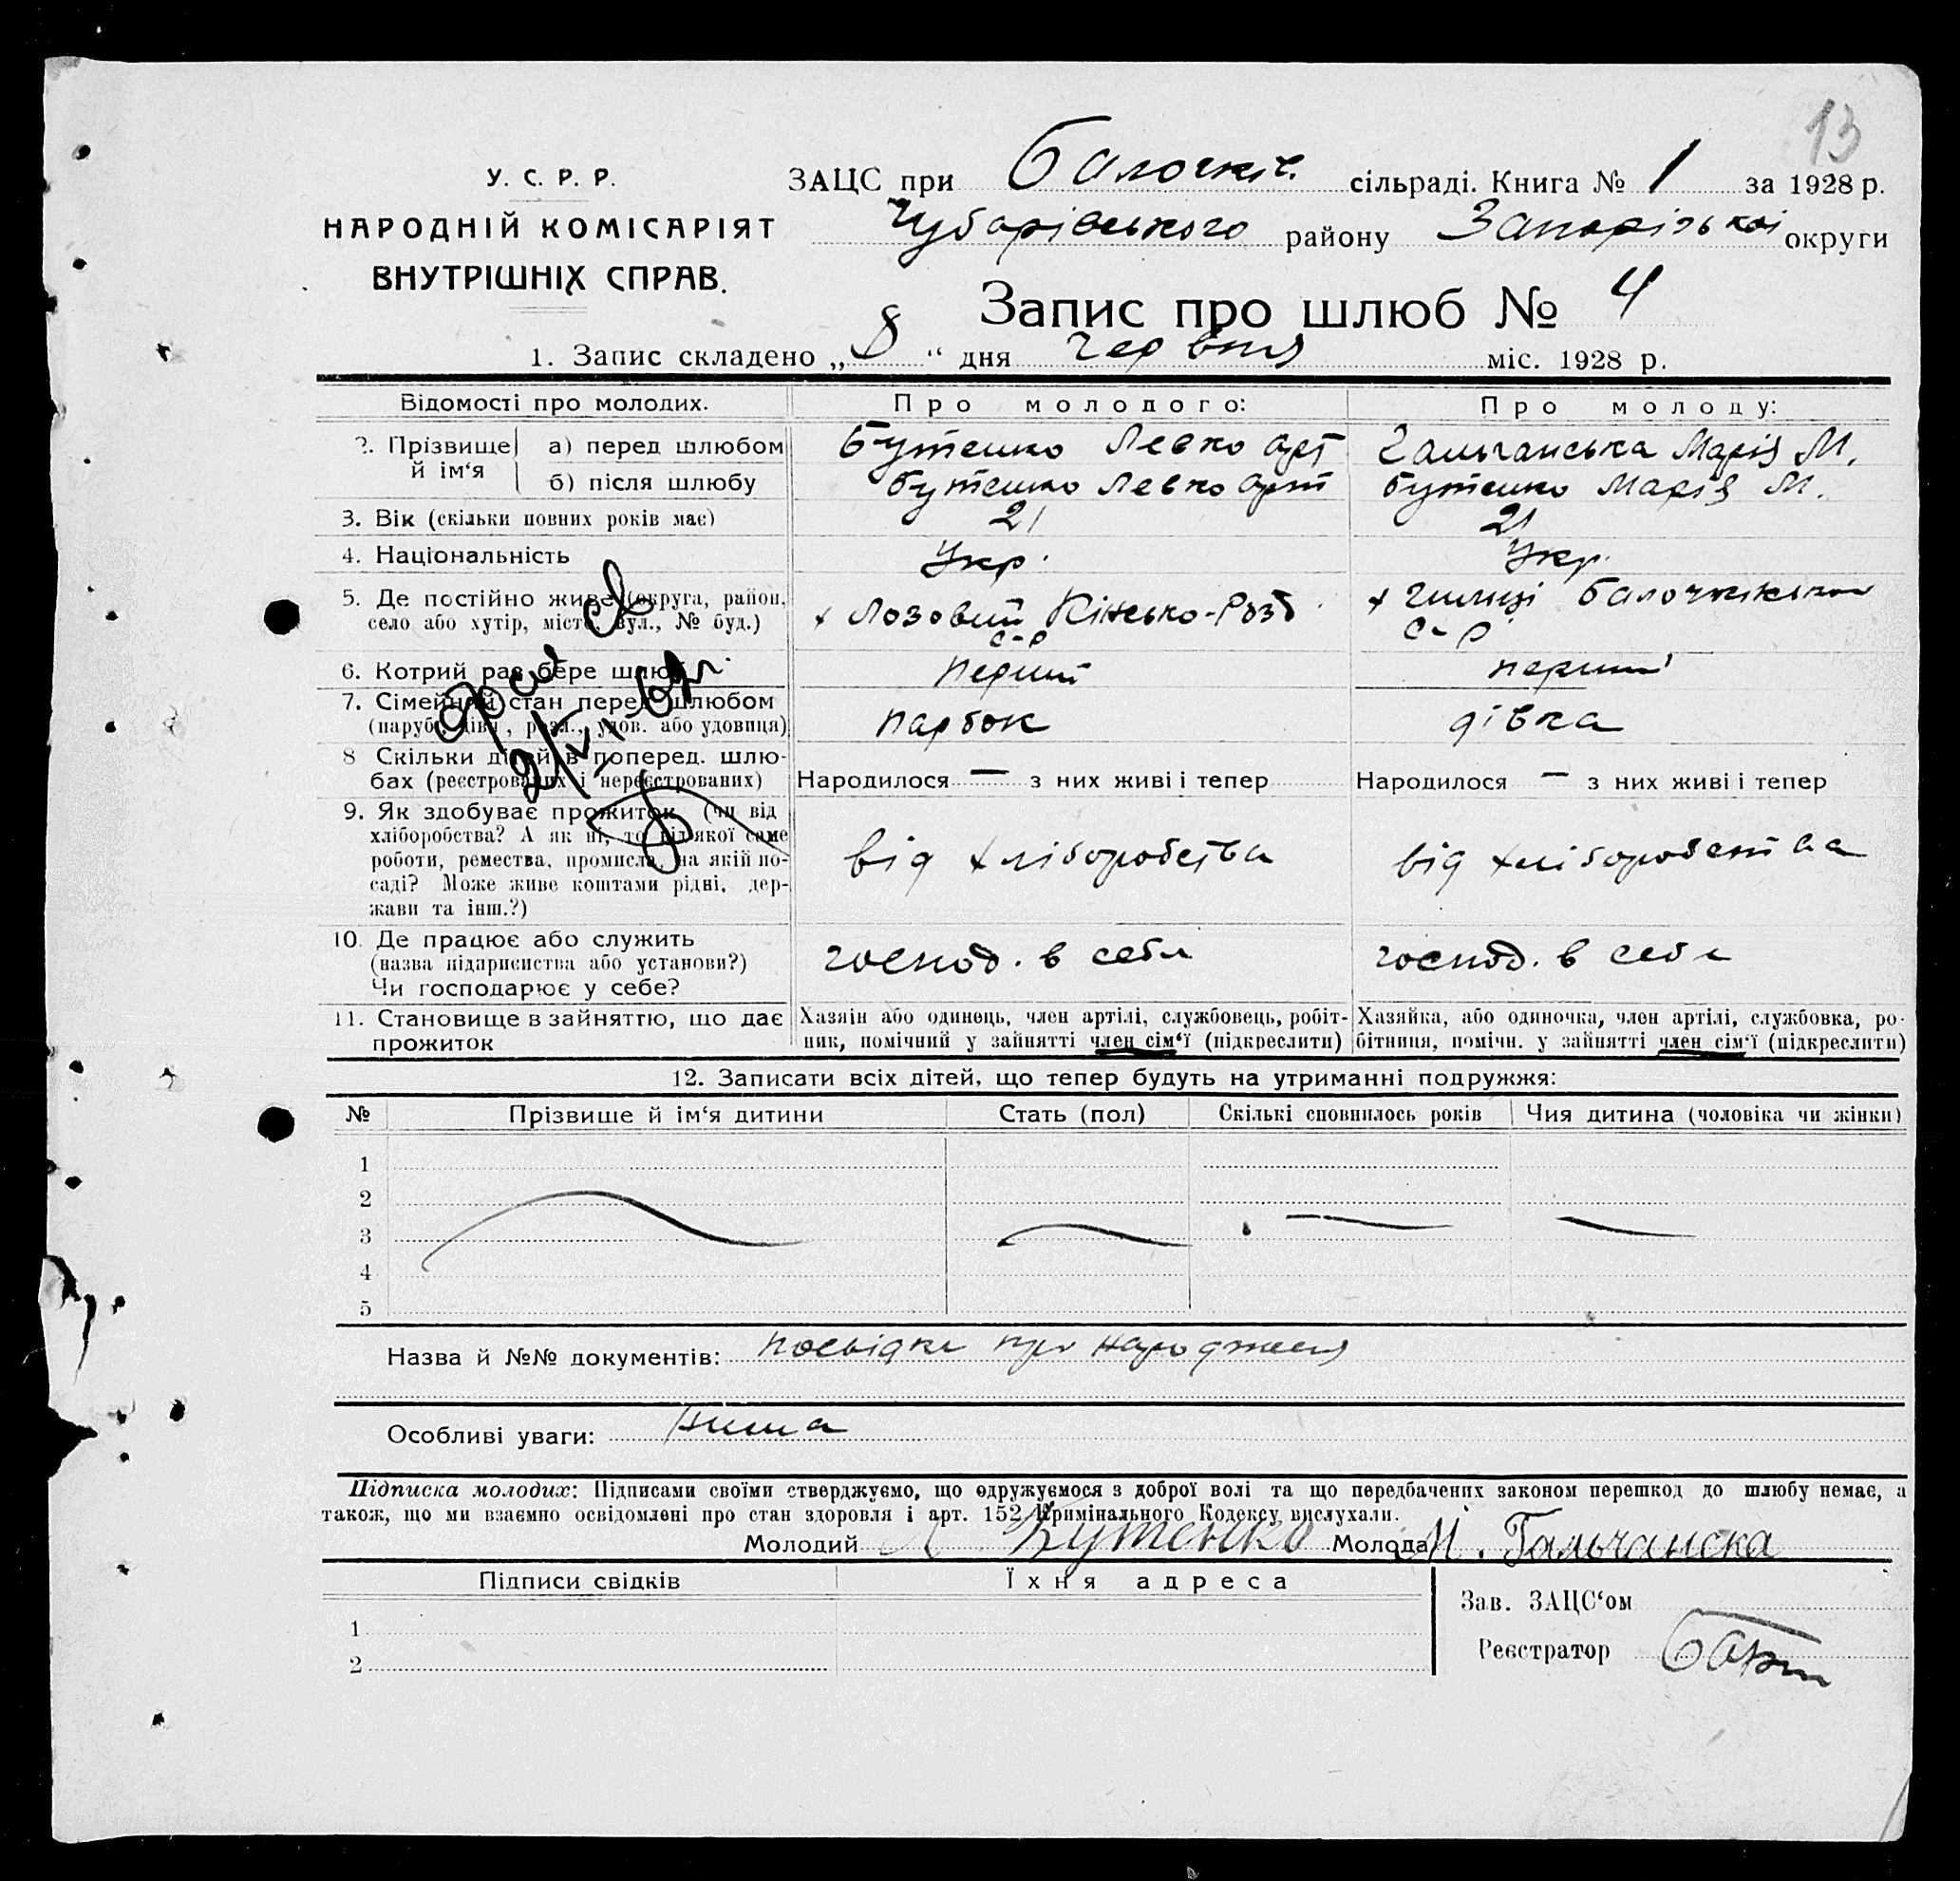 13
У. С. Р. Р.
НАРОДНІЙ КОМІСАРІЯТ
ВНУТРІШНІХ СПРАВ.
ЗАЦС при Балочків. сільраді. Книга № 1 за 1928 р.
Чубарівського району Запорізької округи
Запис про шлюб № 4
1. Запис складено „8“ дня червня міс. 1928 р.
Відомості про молодих. Про молодого: Про молоду:
2. Прізвище й ім‘я а) перед шлюбом Бутенко Левко Арт Гальчанська Марія М.
б) після шлюбу Бутенко Левко Арт Бутенко Марія М.
3. Вік (скільки повних років має) 21 21
4. Національність Укр. Укр.
5. Де постійно живе (округа, район, село або хутір, місто, вул., № буд.) х Лозовий Кінсько-Розд с-р х с-р
6. Котрий раз бере шлюб перший перший
7. Сімейний стан перед шлюбом парубок дівка
(паруб., дівч., розл., удов. або удовиця)
8 Скільки дітей в поперед. шлю-
бах (реєстрованих і нереєстрованих) Народилося — з них живі і тепер Народилося — з них живі і тепер
9. Як здобуває прожиток (чи від
хліборобства? А як ні, то від якої саме
роботи, ремества, промисла, на якій по-
саді? Може живе коштами рідні, дер-
жави та інш.?)
від хліборобства від хліборобства
10. Де працює або служить
(назва підприємства або установи?)
Чи господарює у себе?
господ. в себе господ. в себе
11. Становище в зайняттю, що дає
прожиток
Хазяін або одинець, член артілі, службовець, робіт-
ник, помічний у зайнятті член сім‘ї (підкреслити)
Хазяйка, або одиночка, член артілі, службовка, ро-
бітниця, помічн. у зайнятті член сім‘ї (підкреслити)
12. Записати всіх дітей, що тепер будуть на утриманні подружжя:
№ Прізвище й ім‘я дитини Стать (пол) Скількі сповнилось років Чия дитина (чоловіка чи жінки)
1
2
3
4
5
Назва й №№ документів: посвідки про народження
Особливі уваги: нема
Підписка молодих: Підписами своїми стверджуємо, що одружуємося з доброї волі та що передбачених законом перешкод до шлюбу немає, а
також, що ми взаємно освідомлені про стан здоровля і арт. 152 Кримінального Кодексу вислухали.
Молодий Л Бутенко Молода М. Гальчанска
Підписи свідків Їхня адреса
Зав. ЗАЦС‘ом
1
Реєстратор
2